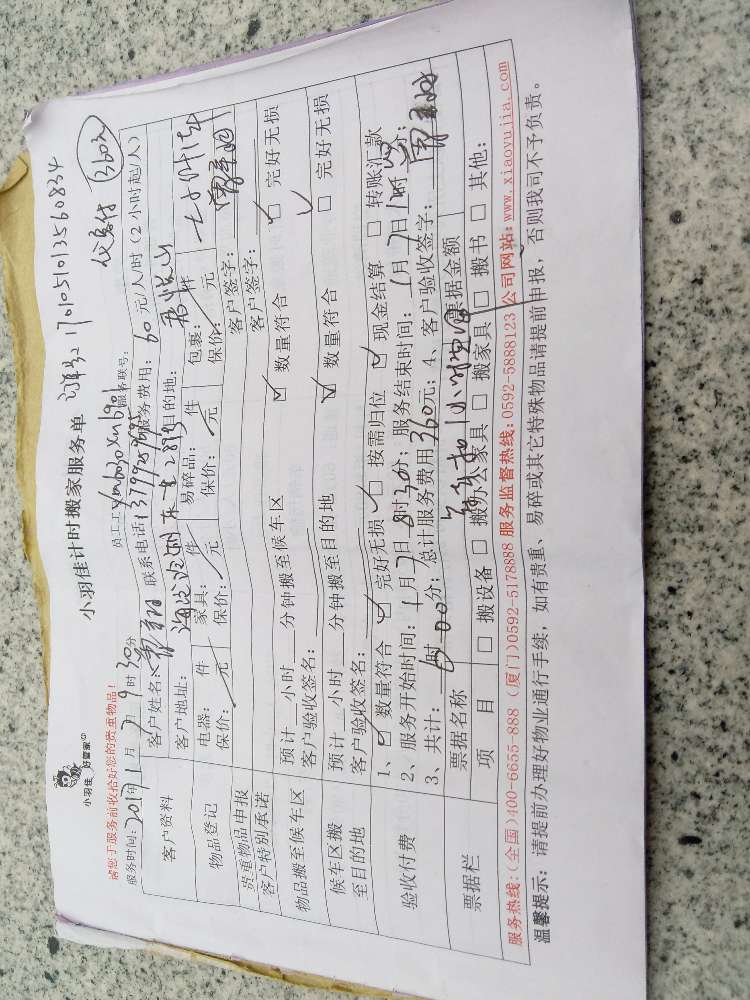 小羽佳 好管家
小羽佳计时搬家服务单 订单号: 1701051013560834
请您于服务前收拾好您的贵重物品!
仅客付 360元
服务时间: 2017年 1 月 7 日 9 时 30分 员工工号: 服务联号:
客户资料 客户姓名: 联系电话: 服务费用: 60 元/人/时(2小时起/人)
客户地址: 目的地:
物品登记 电器: 件 家具: 件 易碎品: 件 包裹: 件
保价: 元 保价: 元 保价: 元 保价: 元
贵重物品申报 客户签字:
客户特别承诺 客户签字:
物品搬至候车区 预计 小时 分钟搬至候车区 ☑ 数量符合 ☑ 完好无损
客户验收签名:
候车区搬至目的地 预计 小时 分钟搬至目的地 ☑ 数量符合 ☑ 完好无损
客户验收签名:
验收付费 1、☑ 数量符合 ☑ 完好无损 ☑ 按需归位 ☑ 现金结算 □ 转账汇款
2、服务开始时间: 1 月 7 日 8 时 30 分; 服务结束时间: 1 月 7 日
3、共计: 6 时 00 分; 总计服务费用 360 元; 4、客户验收签字:
票据栏 票据名称 票据金额
项 目 □ 搬设备 □ 搬办公家具 □ 搬家具 □ 搬书 □ 其他:
服务热线:(全国)400-6655-888 (厦门)0592-5178888 服务监督热线:0592-5888123 公司网站:www.xiaoyujia.com
温馨提示: 请提前办理好物业通行手续, 如有贵重、易碎或其它特殊物品请提前申报, 否则我司不予负责。